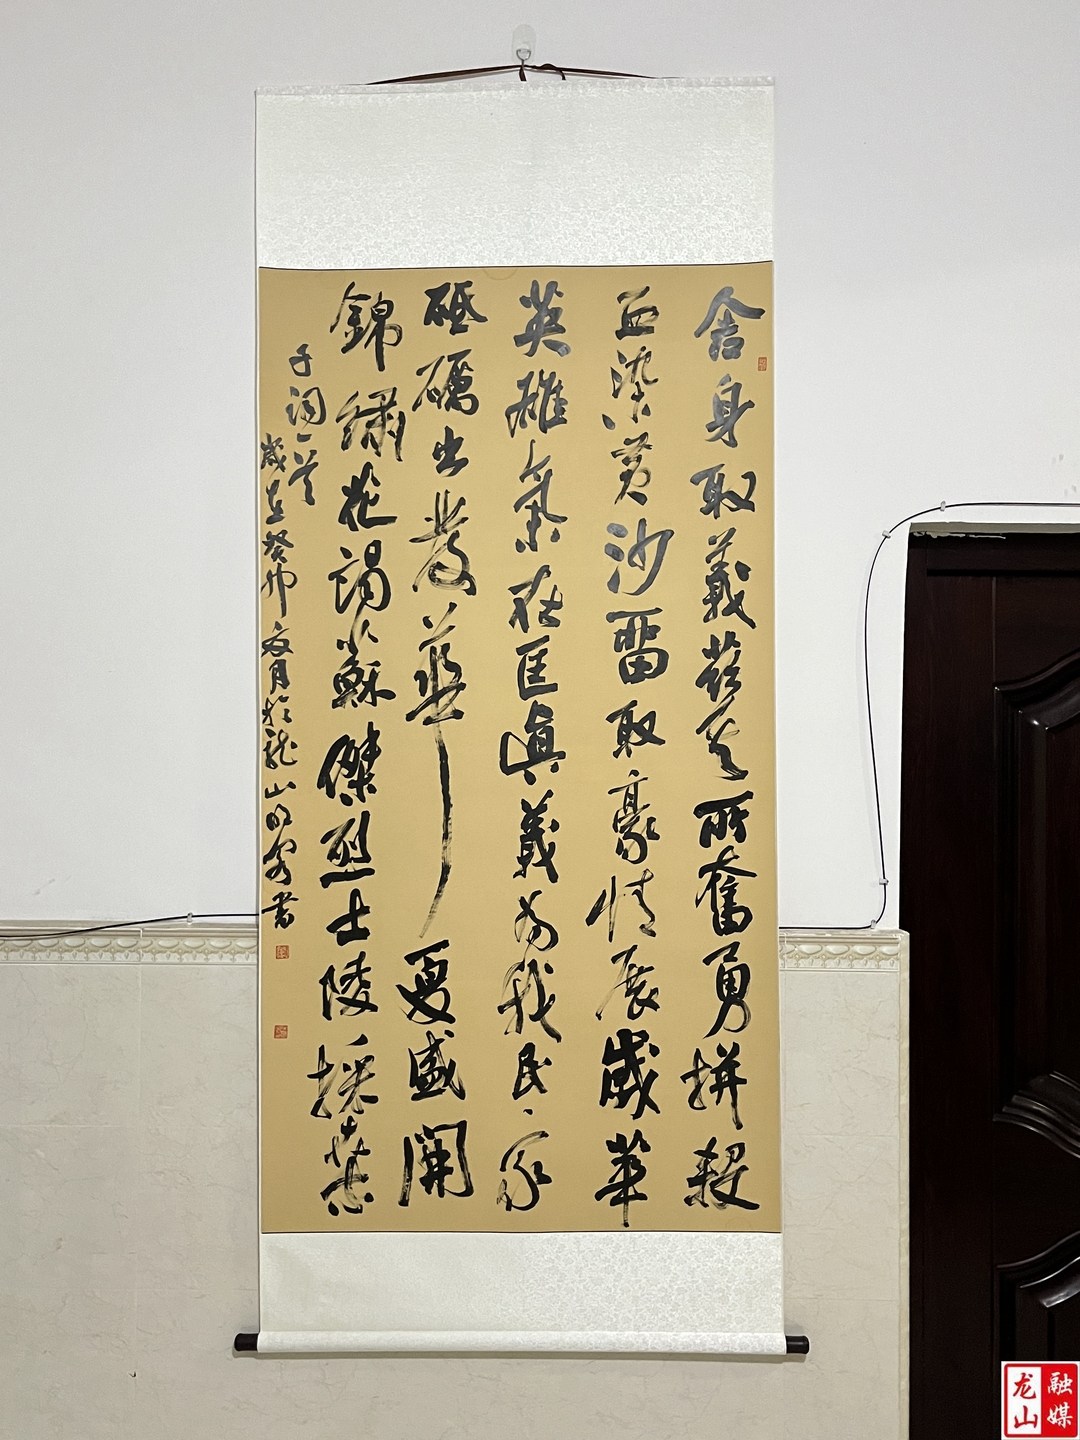 舍身取義所奮勇拼殺
血染黃沙留取豪情展歲華
英雄氣在匡眞義為我民家
砥礪出發華夏盛開
錦繡花謁蘇傑烈士陵採桑
子詞一首
歲在癸卯夏月於龍山書
龙山
融媒